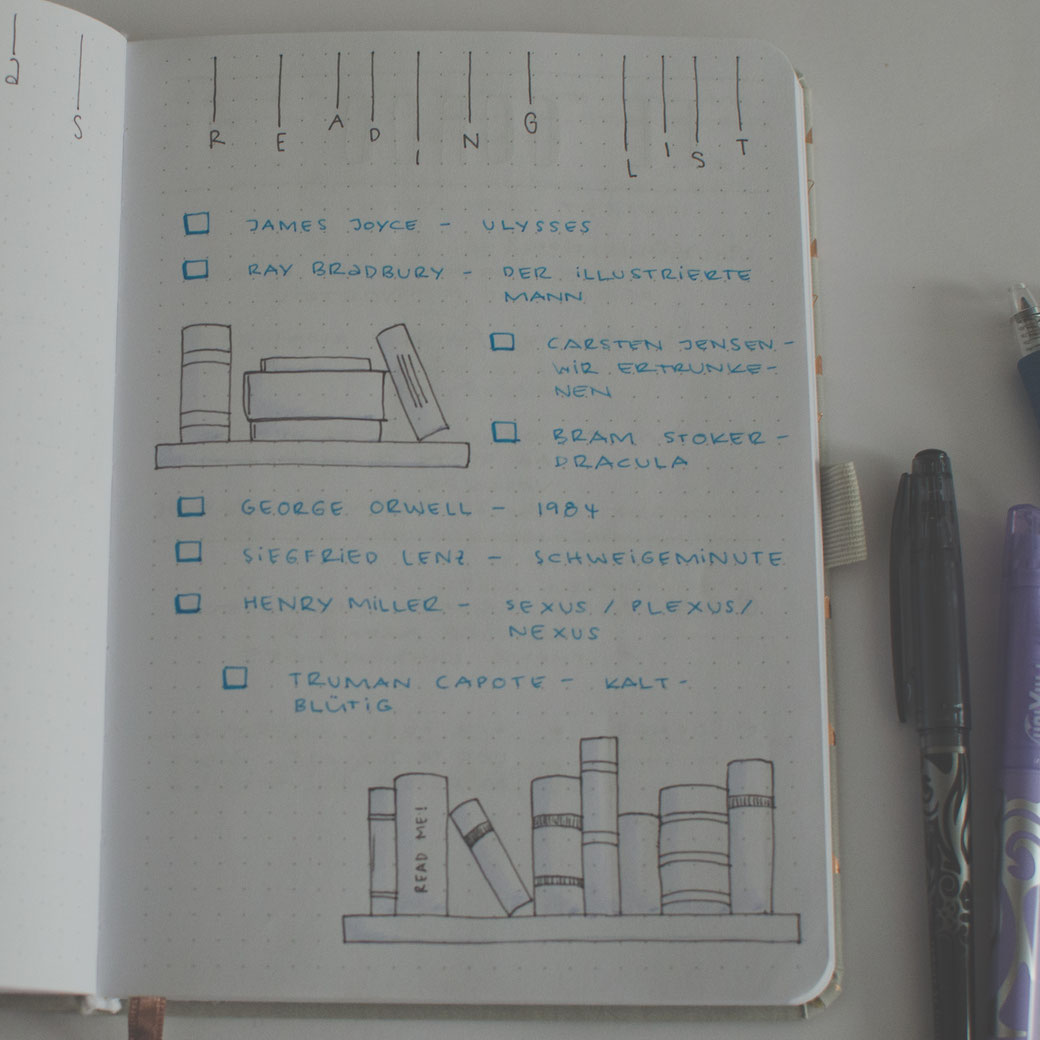 READING LIST
JAMES JOYCE - ULYSSES
RAY BRADBURY - DER ILLUSTRIERTE
MANN
CARSTEN JENSEN -
WIR ERTRUNKE-
NEN
BRAM STOKER -
DRACULA
GEORGE ORWELL - 1984
SIEGFRIED LENZ - SCHWEIGEMINUTE
HENRY MILLER - SEXUS / PLEXUS /
NEXUS
TRUMAN CAPOTE - KALT-
BLÜTIG
READ ME!